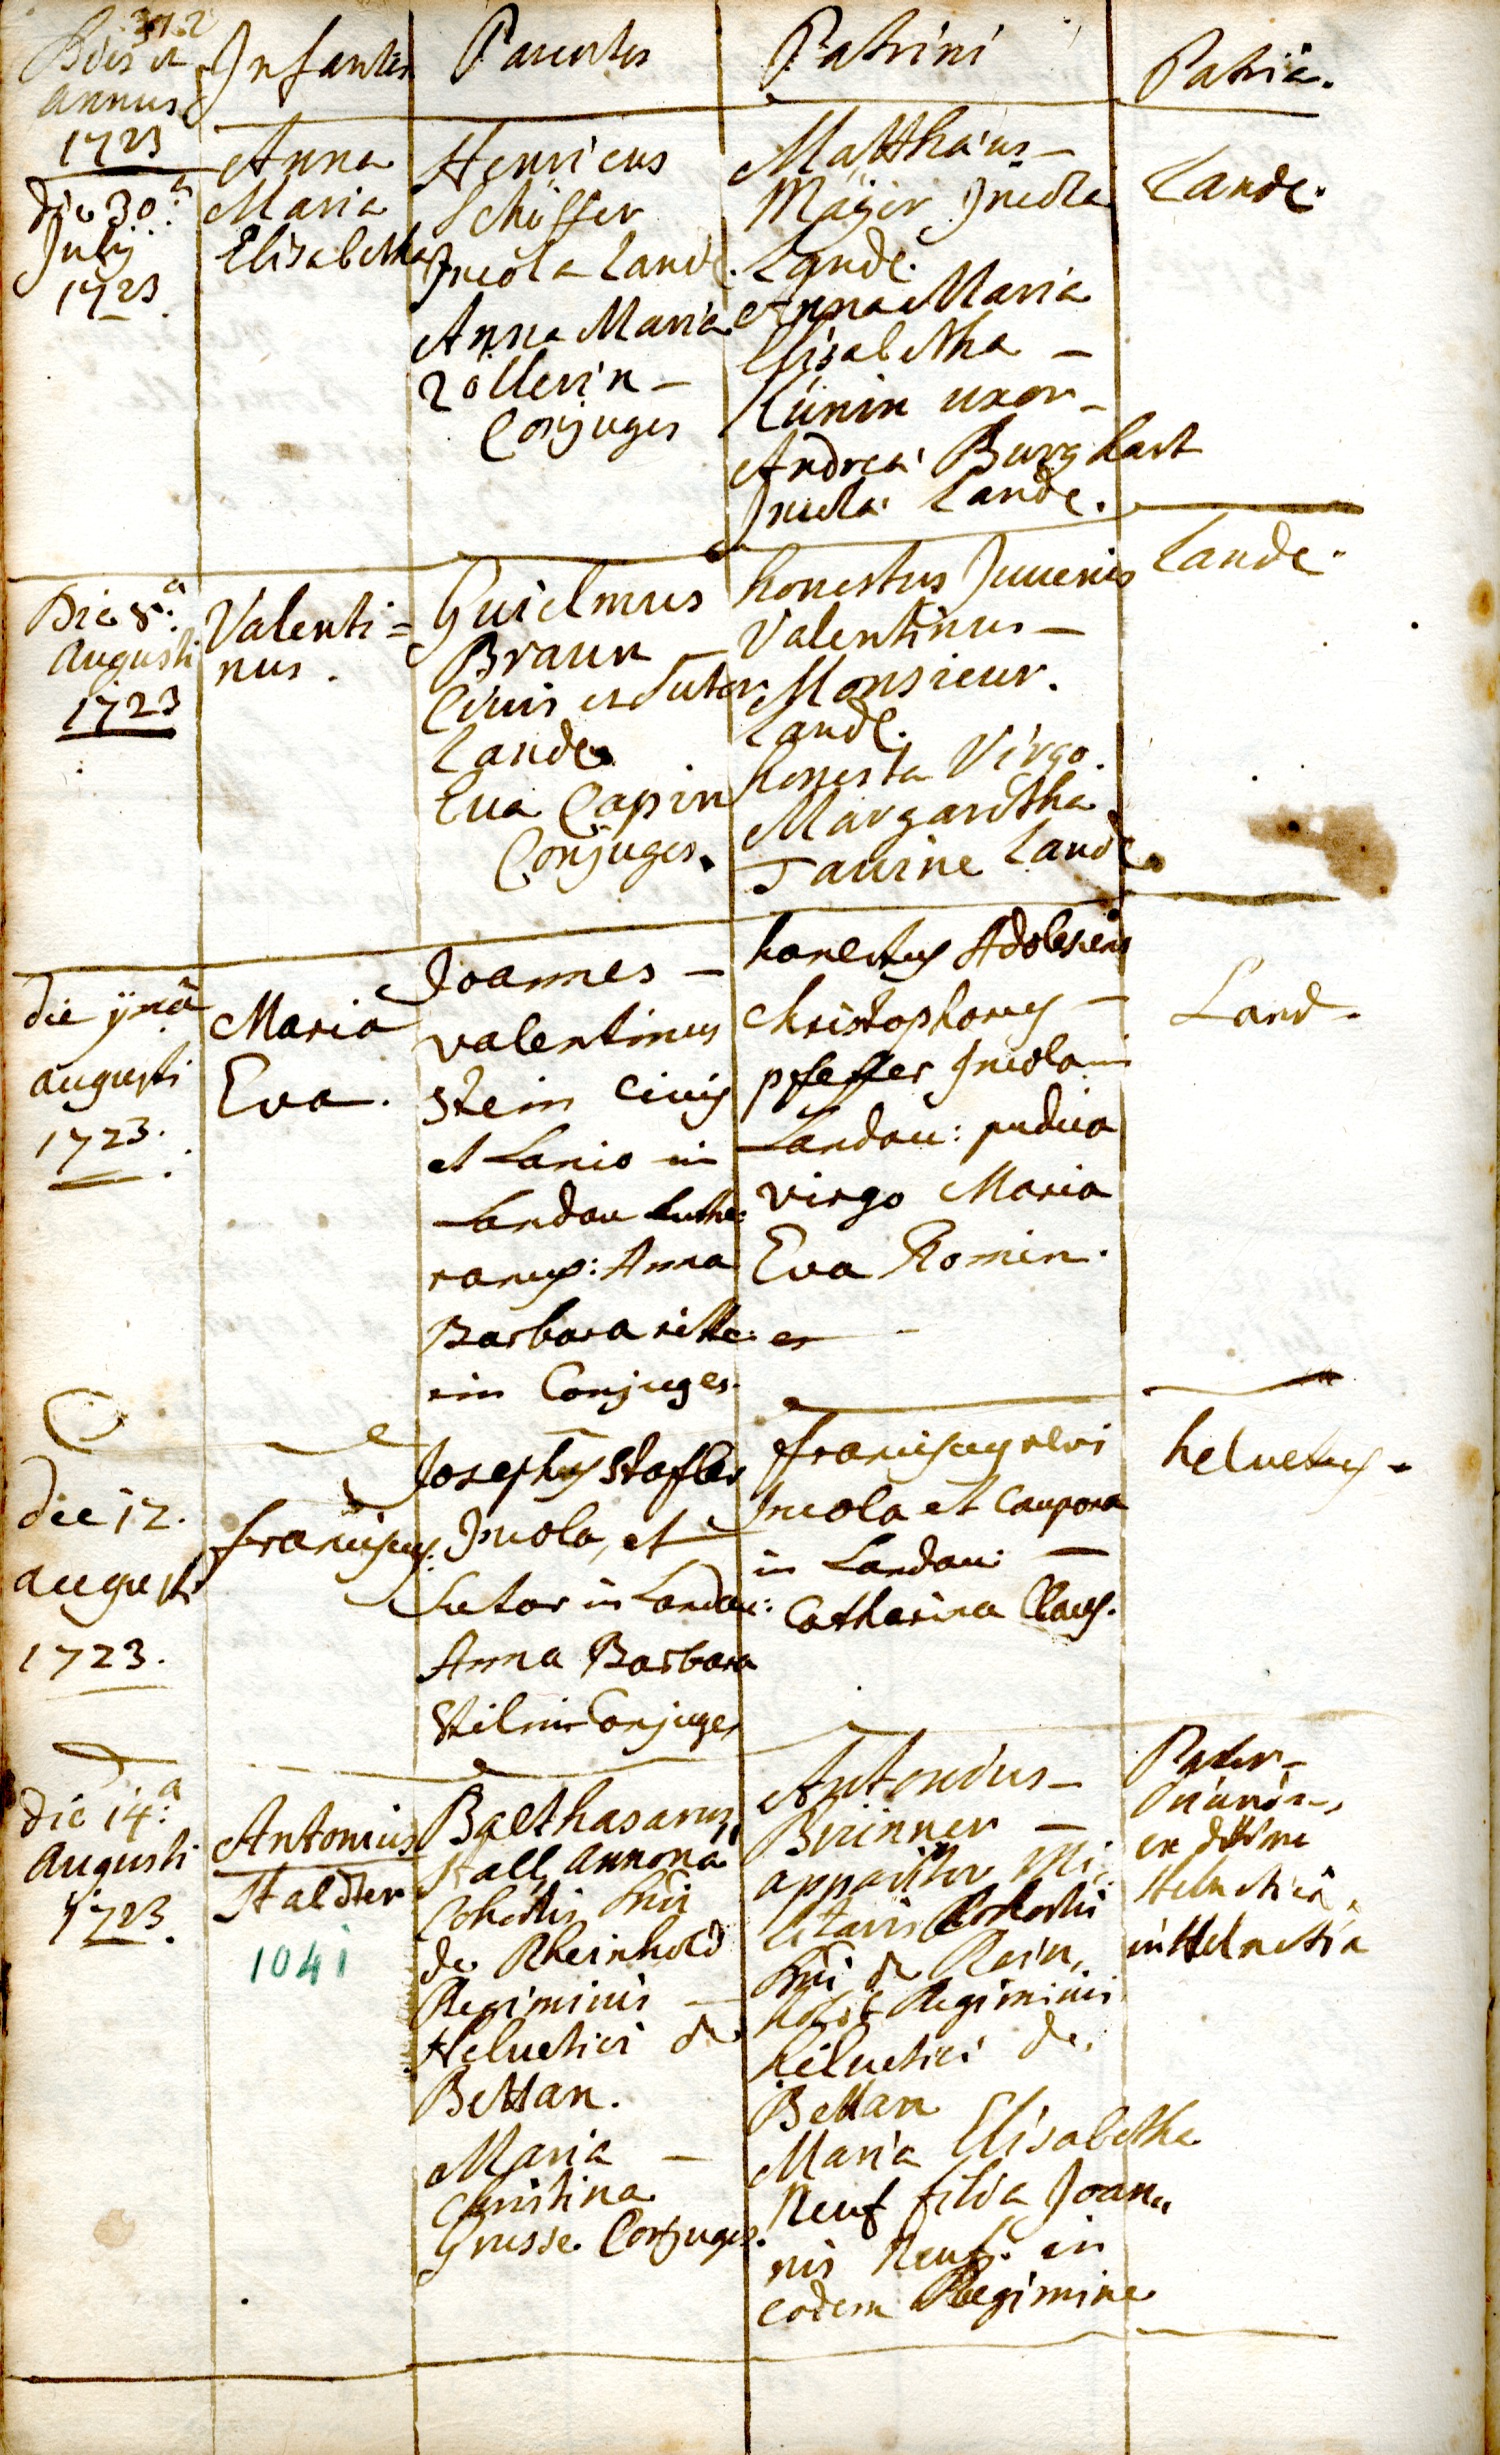 372
Dies et
annus
1723
Infantes
Parentes
Patrini
Patria.
die 30.a
July
1723.
Anna
Maria
Elisabetha
Henricus
Schöffer
Incola Lande.
Anna Maria
Zöllerin -
Conjuges
Matthäus -
Mäyer Incola
Lande.
Anna Maria
Elisabetha -
Künin uxor -
Andreä Burghart
Incola Lande.
Lande.
Die 8.a
Augusti
1723
Valenti=
nus.
Guielmus
Braun -
Civis et Sutor
Lande.
Eva Capin
Conjuges.
honestus Juvenis
Valentinus -
Monsieur.
Lande.
honesta Virgo.
Margaretha
Taurine Lande.
Lande.
die
augusti
1723.
Maria
Eva.
Joannes -
valentinus
Stein Civis
et Lanio in
Landau Luthe:
ranus: Anna
Barbara ritte:
rin Conjuges.
honestus Adolescens
christophorus -
pfeffer Incola in
Landau: pudica
virgo Maria
Eva Romin.
Land.
die 12.
augusti
1723.
franciscus.
Josephus Stafler
Incola, et
Sutor in Landau:
Anna Barbara
Stilnin Conjuges
franciscus
Incola et Caupona
in Landau: -
Catharina Claus.
helvetus.
die 14.a
Augusti
1723.
Antonius
Haldter
1041
Balthasarus
Stall annona
Cohortis
de Rheinhold
Regiminis -
Helvetici de
Bettan.
Maria -
Christina
Grusse Conjuges.
Antonius -
Brinner -
apparitor Mi:
litaris Cohortis
de Rein,
hold Regiminis
helvetici de
Bettan
Maria Elisabetha
Neuf filia Joan,,
nis Neuf. in
eodem Regimine
Pater -
Helvetica
in Helvetia